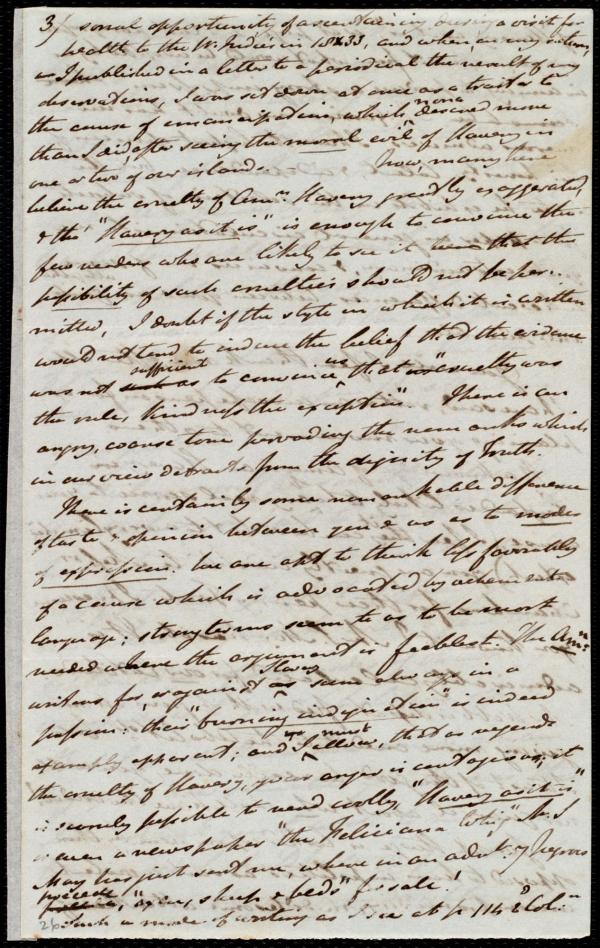 3/ sonal opportunity of ascertaining during a visit for
health to the W. Indies in 1833, and when, on my return,
as I published in a letter to a periodical the result of my
observations, I was set down at once as a traitor to
the cause of emancipation, which none desired more
than I did after seeing the moral evil of Slavery in
one or two of our islands. Now, many here
believe the cruelty of Amn. Slavery greatly exaggerated,
& tho' "Slavery as it is" is enough to convince the
few readers who are likely to see it that the
possibility of such cruelties should not be per-
mitted, I doubt if the style in which it is written
would not tend to induce the belief that the evidence
was not sufficient as to convince us that "cruelty was
the rule, kindness the exception". There is an
angry, coarse tone pervading the remarks which
in our view detracts from the dignity of Truth.
There is certainly some remarkable difference
of taste & opinion between you & us as to modes
of expression. We are apt to think less favorably
of a cause which is advocated by vehement
language; strong terms seem to us to be most
needed where the argument is feeblest. The Amn.
writers for or against Slavery are always in a
passion: their "burning indignation" is indeed
amply apparent; and I must allow, that as regards
the cruelty of Slavery, your anger is contagious; it
is scarcely possible to read coolly, "Slavery as it is"
or even a newspaper "the Feliciana Whig" Mr. S
May has just sent me, where in an advt. of Negroes
precede "oxen, sheep & beds" for sale!
Such a mode of writing as I see at p 114 2d Coln.